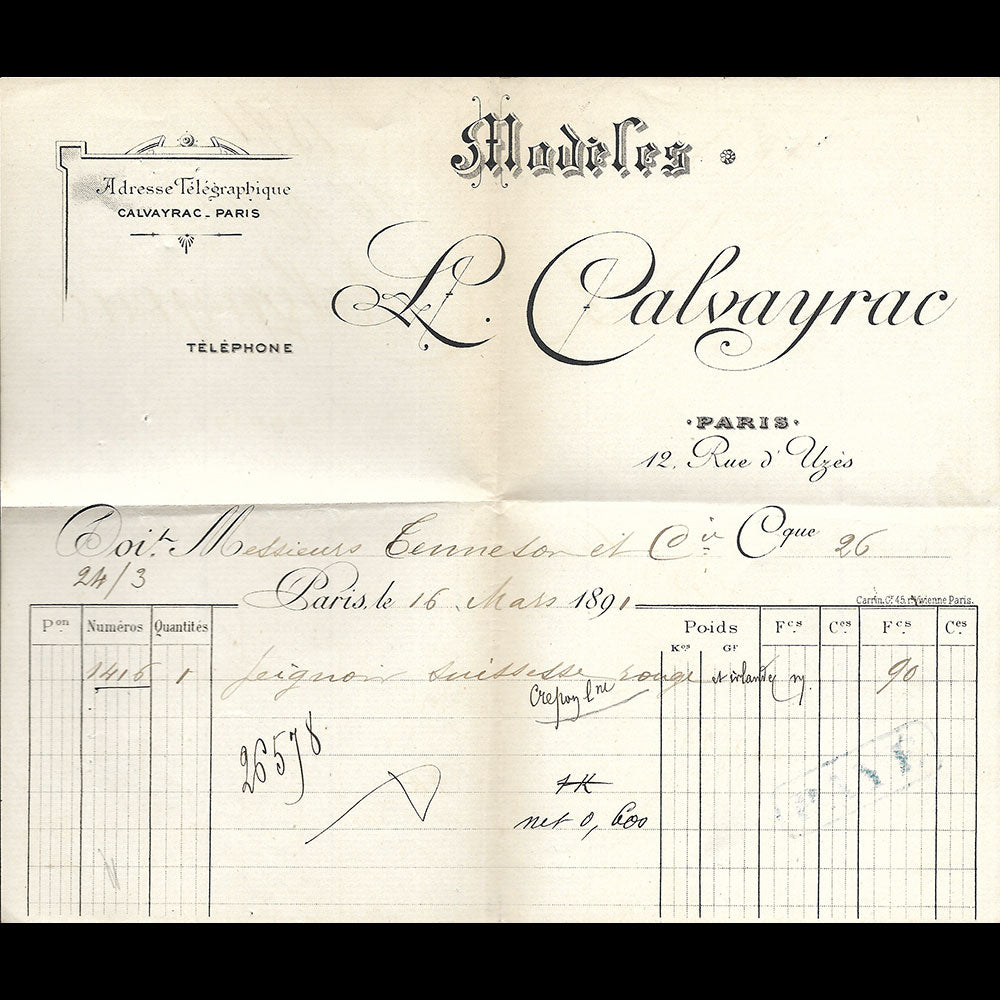 Modèles
Adresse Télégraphique
CALVAYRAC - PARIS
L. Calvayrac
TÉLÉPHONE
PARIS
12, Rue d'Uzès
Doit Messieurs Tenneson et Cie Cque 26
24/3
Paris, le 16 Mars 1891
Carrin, Cr 45, r. Vivienne Paris.
Pon Numéros Quantités Poids Fcs Ces Fcs Ces
Kos Gr
1416 1 peignoir suissesse rouge et irlande 90
Crepon lne
26578
1K
net 0,600